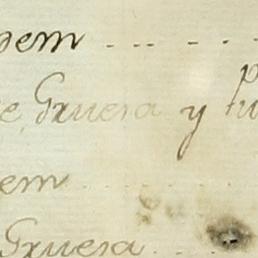 dem
e Gruesa y
em
Gruesa